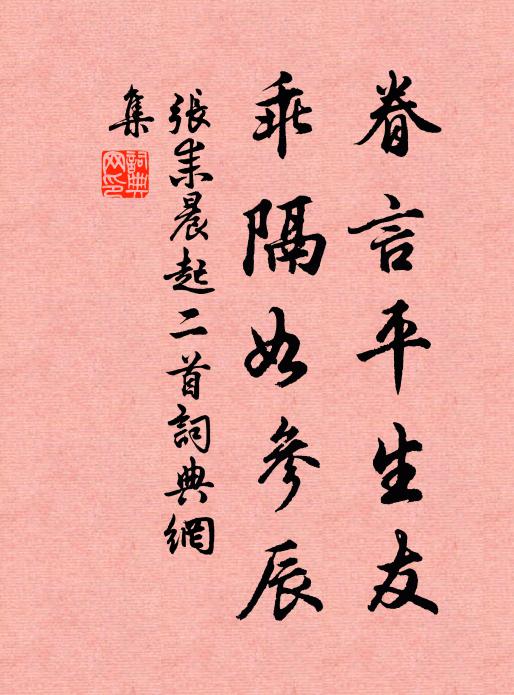 眷言平生友
乖隔如參辰
張耒晨起二首詞典網
集
詞典網印